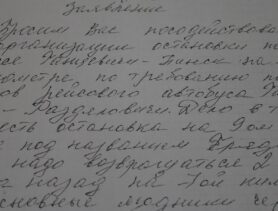 Заявление
Просим Вас посодействова
организации остановки на
се Ганцевичи-Пинск на
ометре, по требованию п
ов рейсового автобуса
- Раздяловичи. Дело в т
есть остановка на 9ом
е под названием
надо возвращаться 2
назад на 7ой
основные людьми